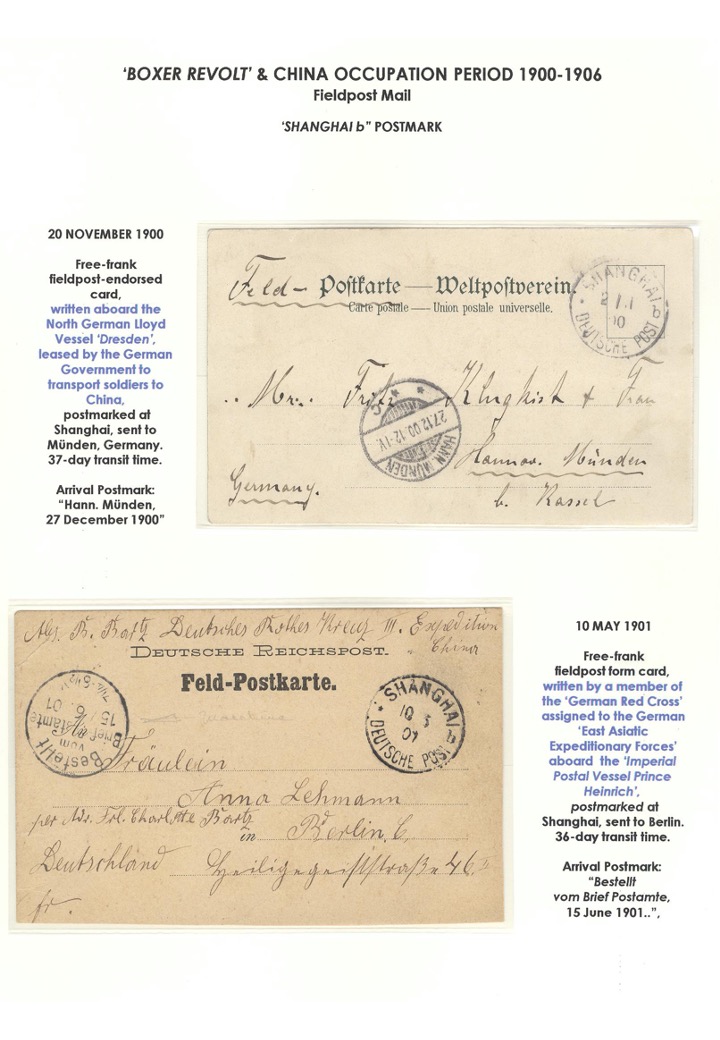 'BOXER REVOLT' & CHINA OCCUPATION PERIOD 1900-1906
Fieldpost Mail
'SHANGHAI b" POSTMARK
20 NOVEMBER 1900
Free-frank
fieldpost-endorsed
card,
written aboard the
North German Lloyd
Vessel 'Dresden',
leased by the German
Government to
transport soldiers to
China,
postmarked at
Shanghai, sent to
Münden, Germany.
37-day transit time.
Arrival Postmark:
"Hann. Münden,
27 December 1900"
Feld- Postkarte — Weltpostverein.
Carte postale — Union postale universelle.
SHANGHAI
00
DEUTSCHE POST b
Mrr. Fritz Klugkist & Frau
27.12.00.12-1V.
HANN. MÜNDEN
Hannov. Münden
Germany.
b. Kassel
Abs. B. Bartz Deutsches Rothes Kreuz III. Expedition
China
DEUTSCHE REICHSPOST.
Feld-Postkarte.
SHANGHAI
10 5
01
DEUTSCHE POST b
Bestellt
vom
Brief Postamte
15 6 01
Fräulein
Anna Lehmann
per Adr. Frl. Charlotte Bartz
in Berlin. C.
Deutschland Heiligegeiststraße 46
fr.
10 MAY 1901
Free-frank
fieldpost form card,
written by a member of
the 'German Red Cross'
assigned to the German
'East Asiatic
Expeditionary Forces'
aboard the 'Imperial
Postal Vessel Prince
Heinrich',
postmarked at
Shanghai, sent to Berlin.
36-day transit time.
Arrival Postmark:
"Bestellt
vom Brief Postamte,
15 June 1901..",